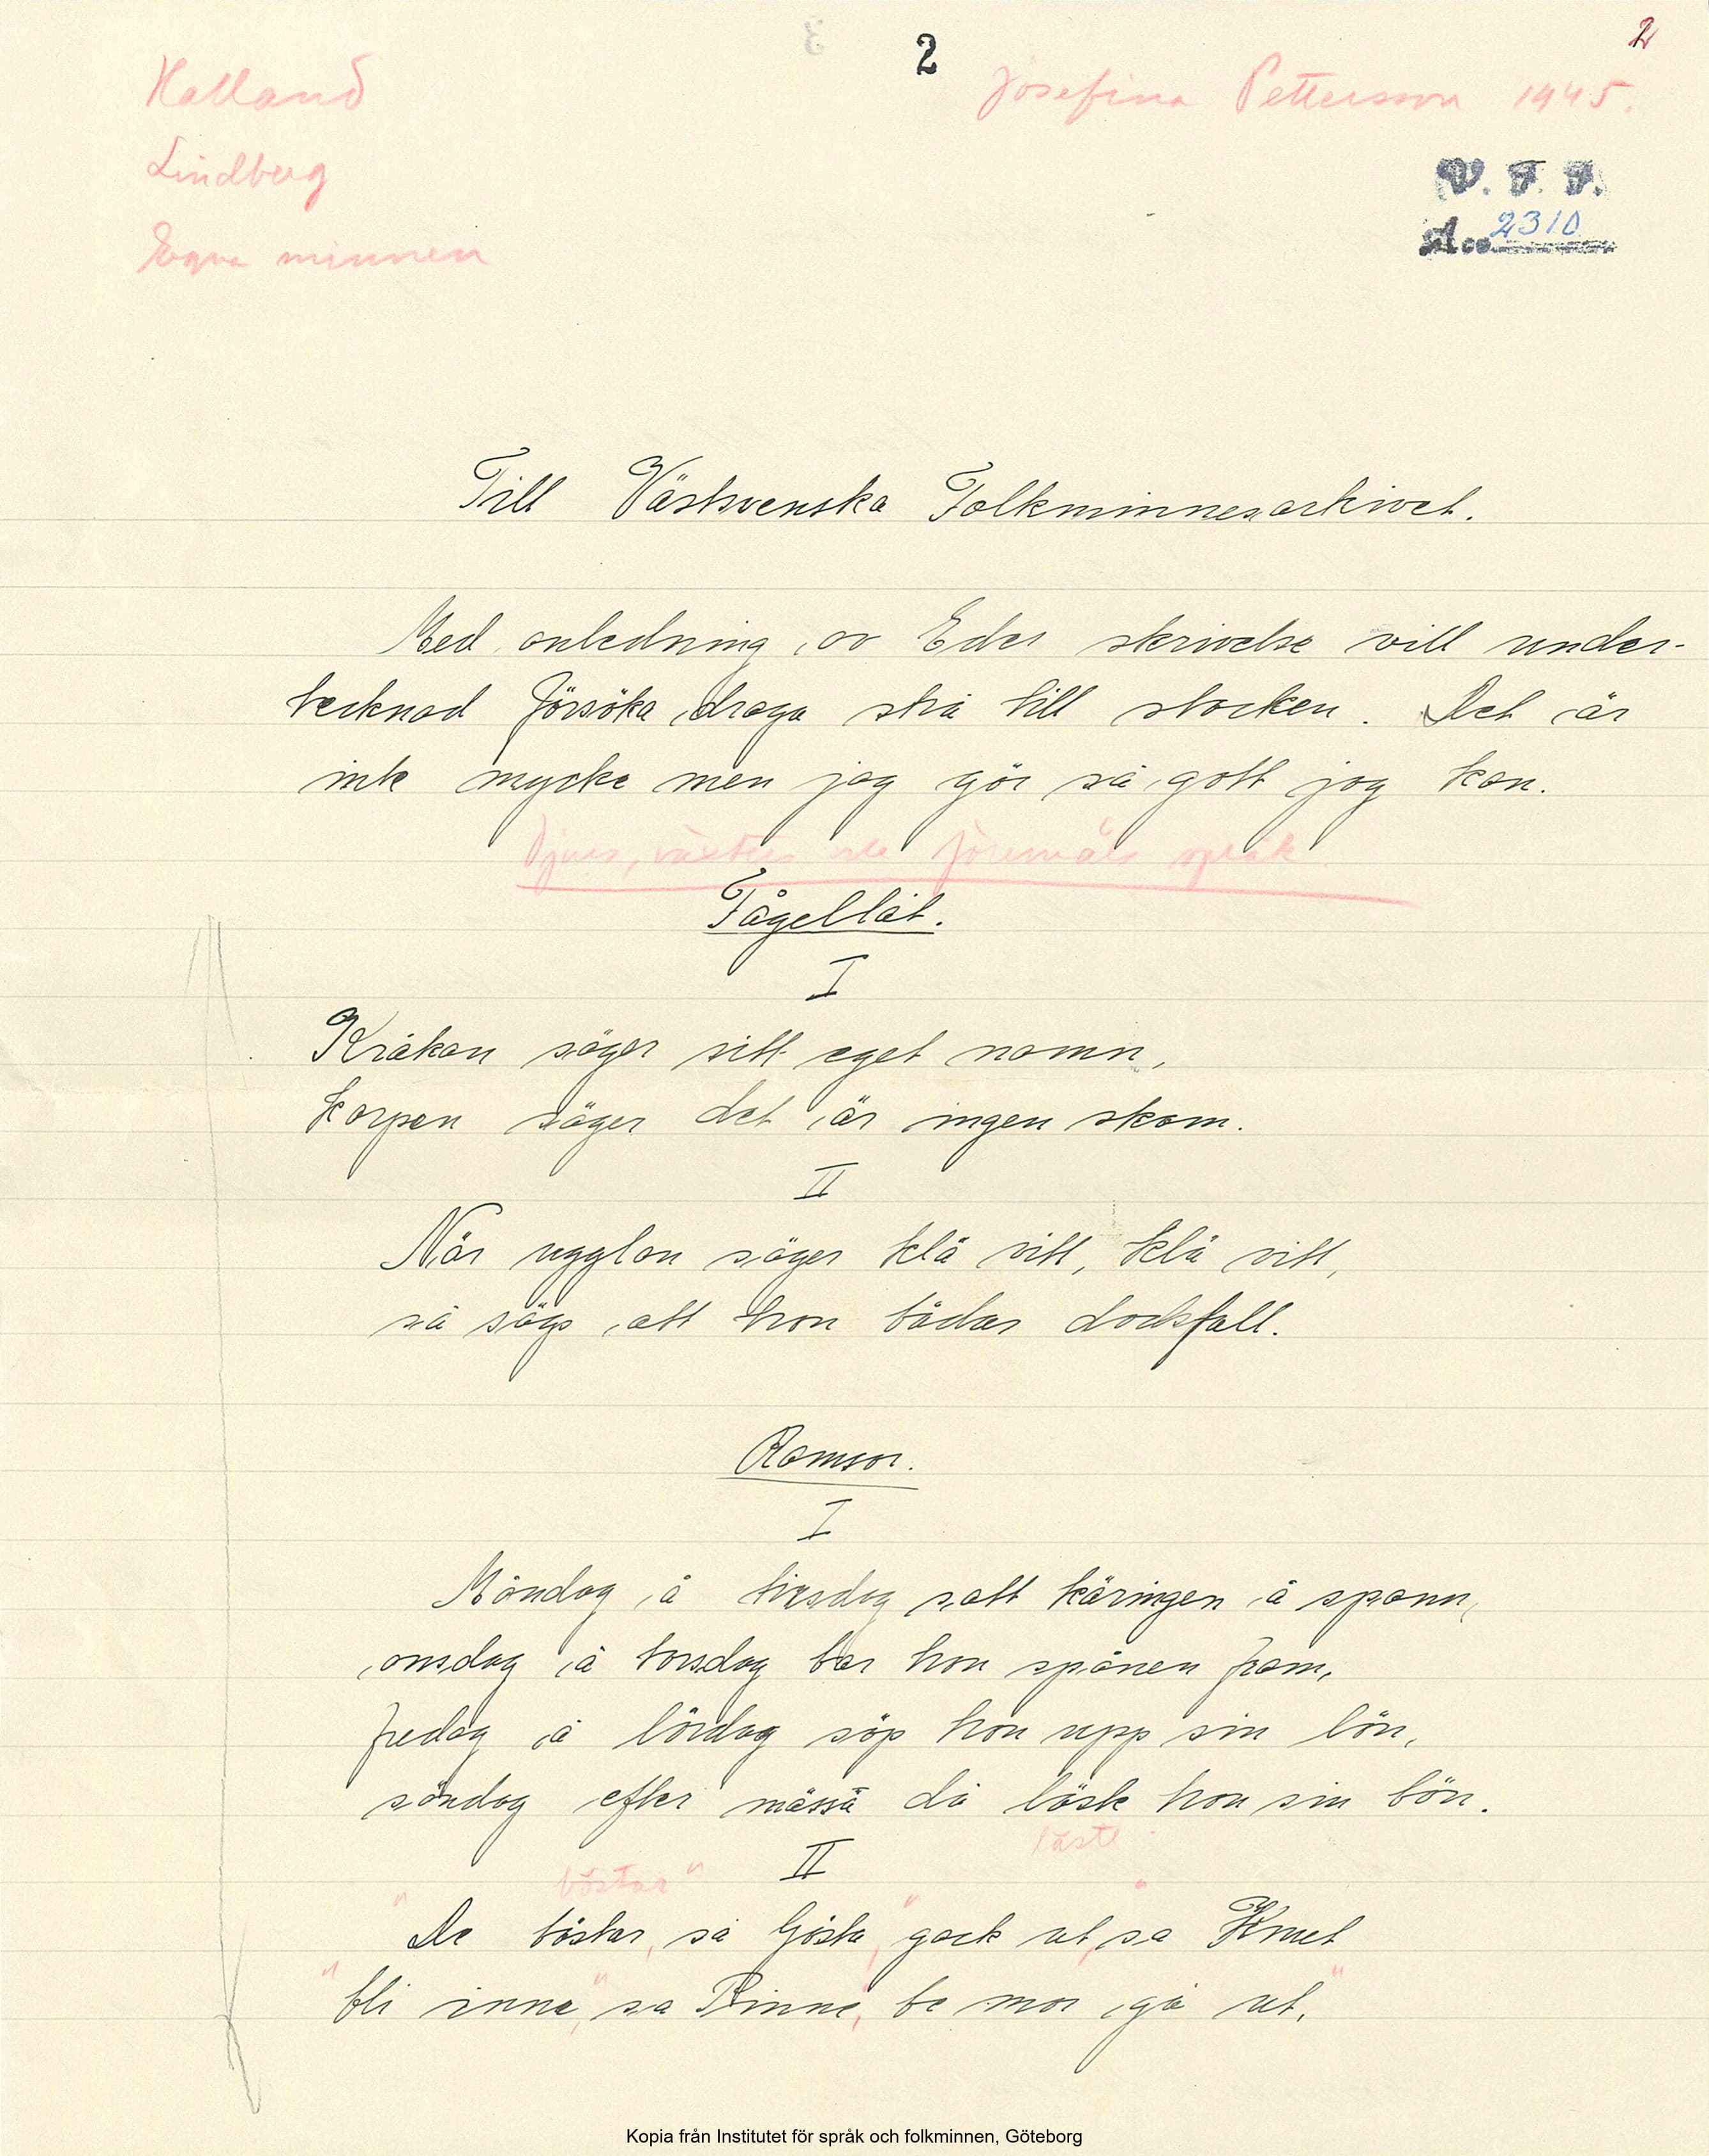 2
2
Halland
Josefina Pettersson 1945.
Lindberg
V. F. F.
Acc. 2310
Egna minnen
Till Västsvenska Folkminnesarkivet.
Med anledning av Eder skrivelse vill under-
tecknad försöka draga strå till stocken. Det är
inte mycke men jag gör så gott jag kan.
Djurs, växters och föremåls språk.
Fågellåt.
I
Kråkan säger sitt eget namn,
korpen säger det är ingen skam.
II
När ugglan säger klä vitt, klä vitt,
så sägs att hon bådar dödsfall.
Ramsor.
I
Måndag å tisdag satt käringen å spann,
onsdag å torsdag bar hon spånen fram,
fredag å lördag söp hon upp sin lön,
söndag efter mässä då läste hon sin bön.
läste
II
böstar"
"De böstar, sa Gösta, "gack ut, sa" Knut
"bli inne," sa Binne, be mor gå ut."
Kopia från Institutet för språk och folkminnen, Göteborg